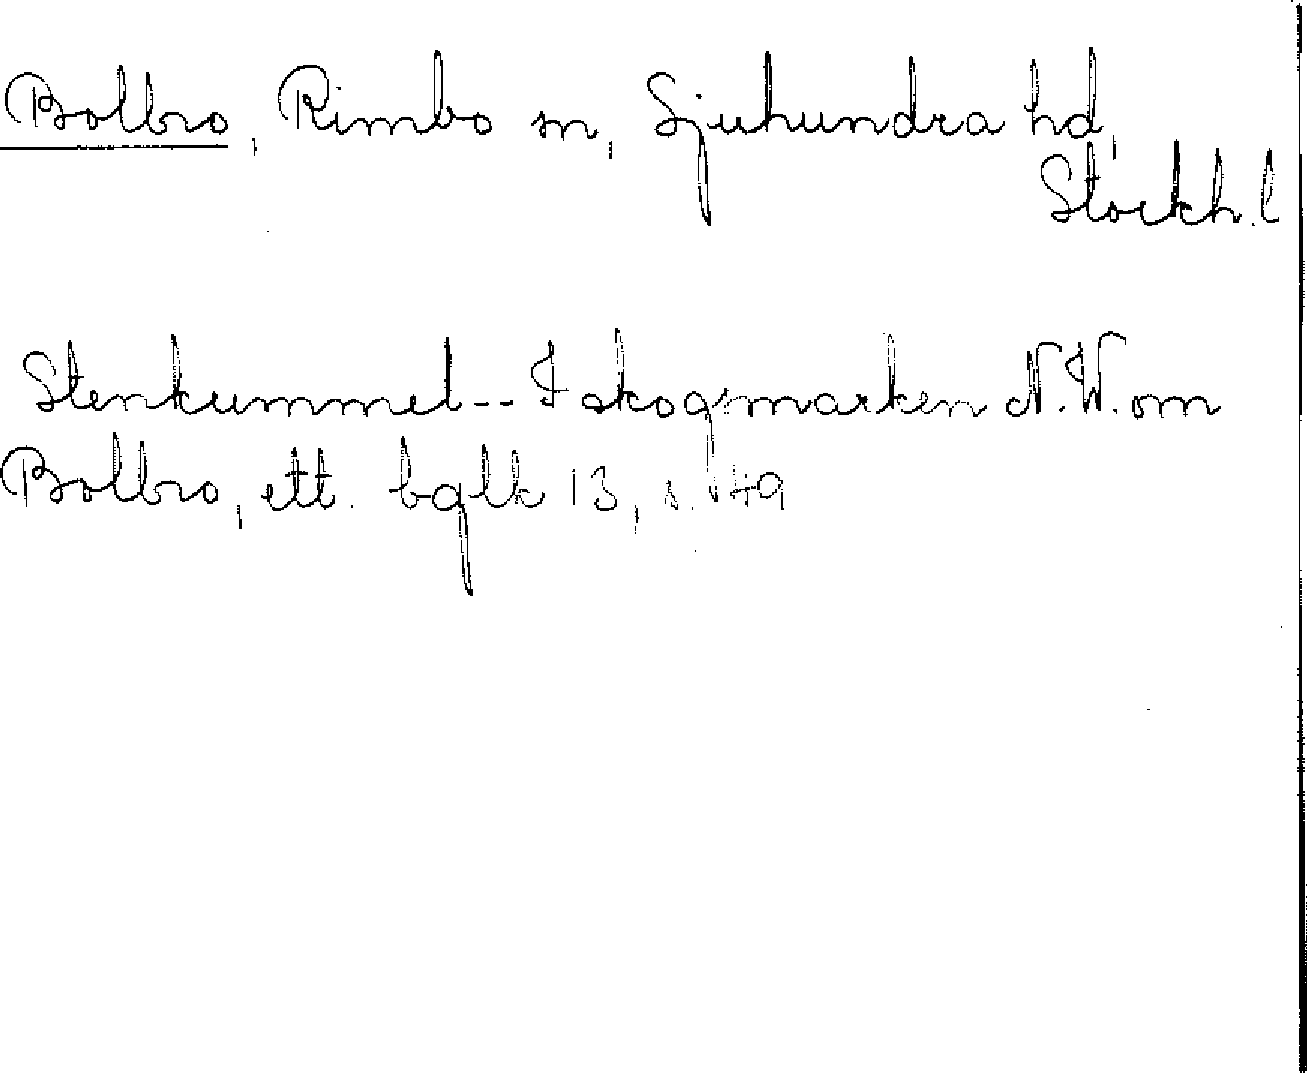 Bolbro, Rimbo sn, Sjuhundra hd,
Stockh. l
Stenkummel -- I skogsmarken N.W. om
Bolbro, ett. bglk 13, s. 49